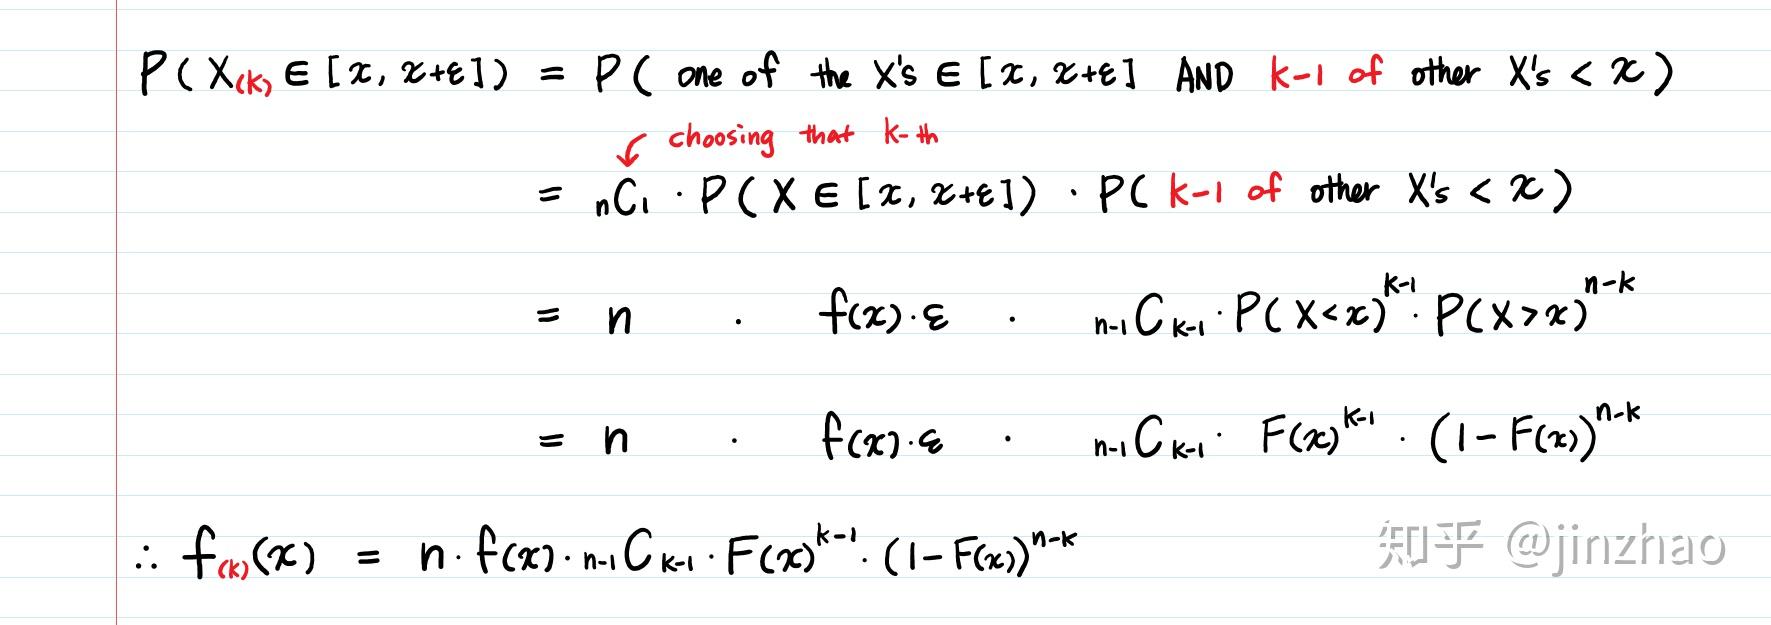 P( X(k) ∈ [x, x+ε]) = P( one of the X's ∈ [x, x+ε] AND k-1 of other X's < x )
choosing that k-th
= nC1 · P( X ∈ [x, x+ε]) · P( k-1 of other X's < x )
= n · f(x)·ε · n-1Ck-1 · P( X<x)^k-1 · P( X>x)^n-k
= n · f(x)·ε · n-1Ck-1 · F(x)^k-1 · (1-F(x))^n-k
∴ f(k)(x) = n · f(x) · n-1Ck-1 · F(x)^k-1 · (1-F(x))^n-k
知乎 @jinzhao